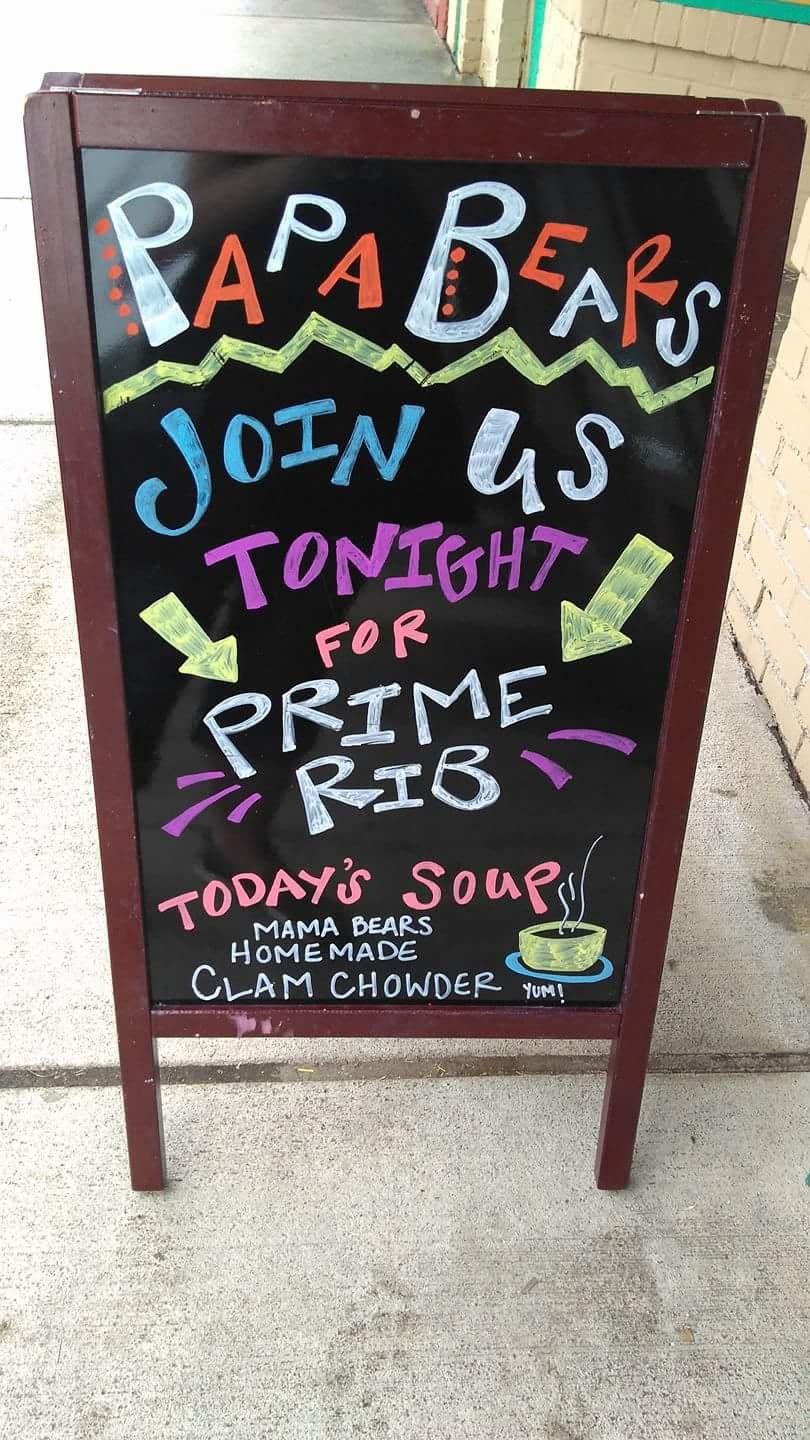 PAPA BEARS
JOIN US
TONIGHT
FOR
PRIME
RIB
TODAY'S SOUP
MAMA BEARS
HOMEMADE
CLAM CHOWDER YUM!